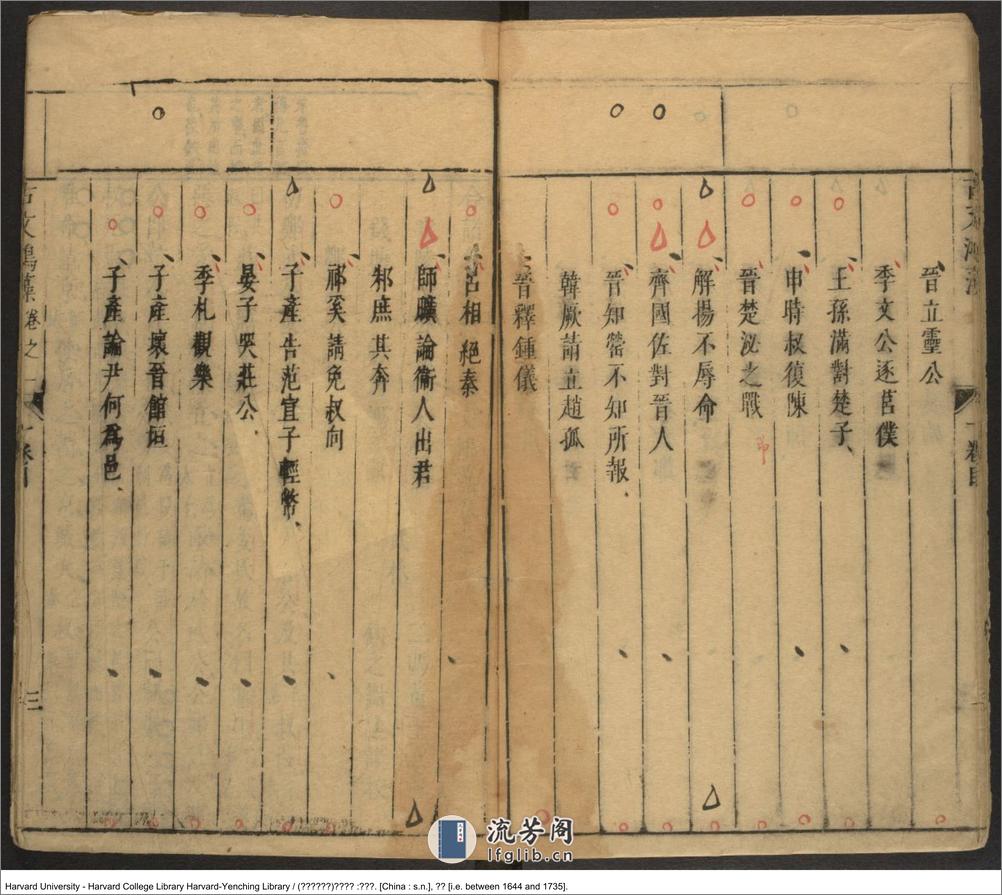 晉立靈公
季文公逐莒僕
王孫滿對楚子
申時叔復陳
晉楚泌之戰
解揚不辱命
齊國佐對晉人
晉知罃不知所報
韓厥請立趙孤
晉釋鍾儀
呂相絕秦
師曠論衛人出君
邾庶其奔
祁奚請免叔向
子產告范宣子輕幣
晏子哭莊公
季札觀樂
子產壞晉館垣
子產論尹何為邑
卷之一
三
流芳阁
lfglib.cn
Harvard University - Harvard College Library Harvard-Yenching Library / (??????)???? :???. [China : s.n.], ?? [i.e. between 1644 and 1735].